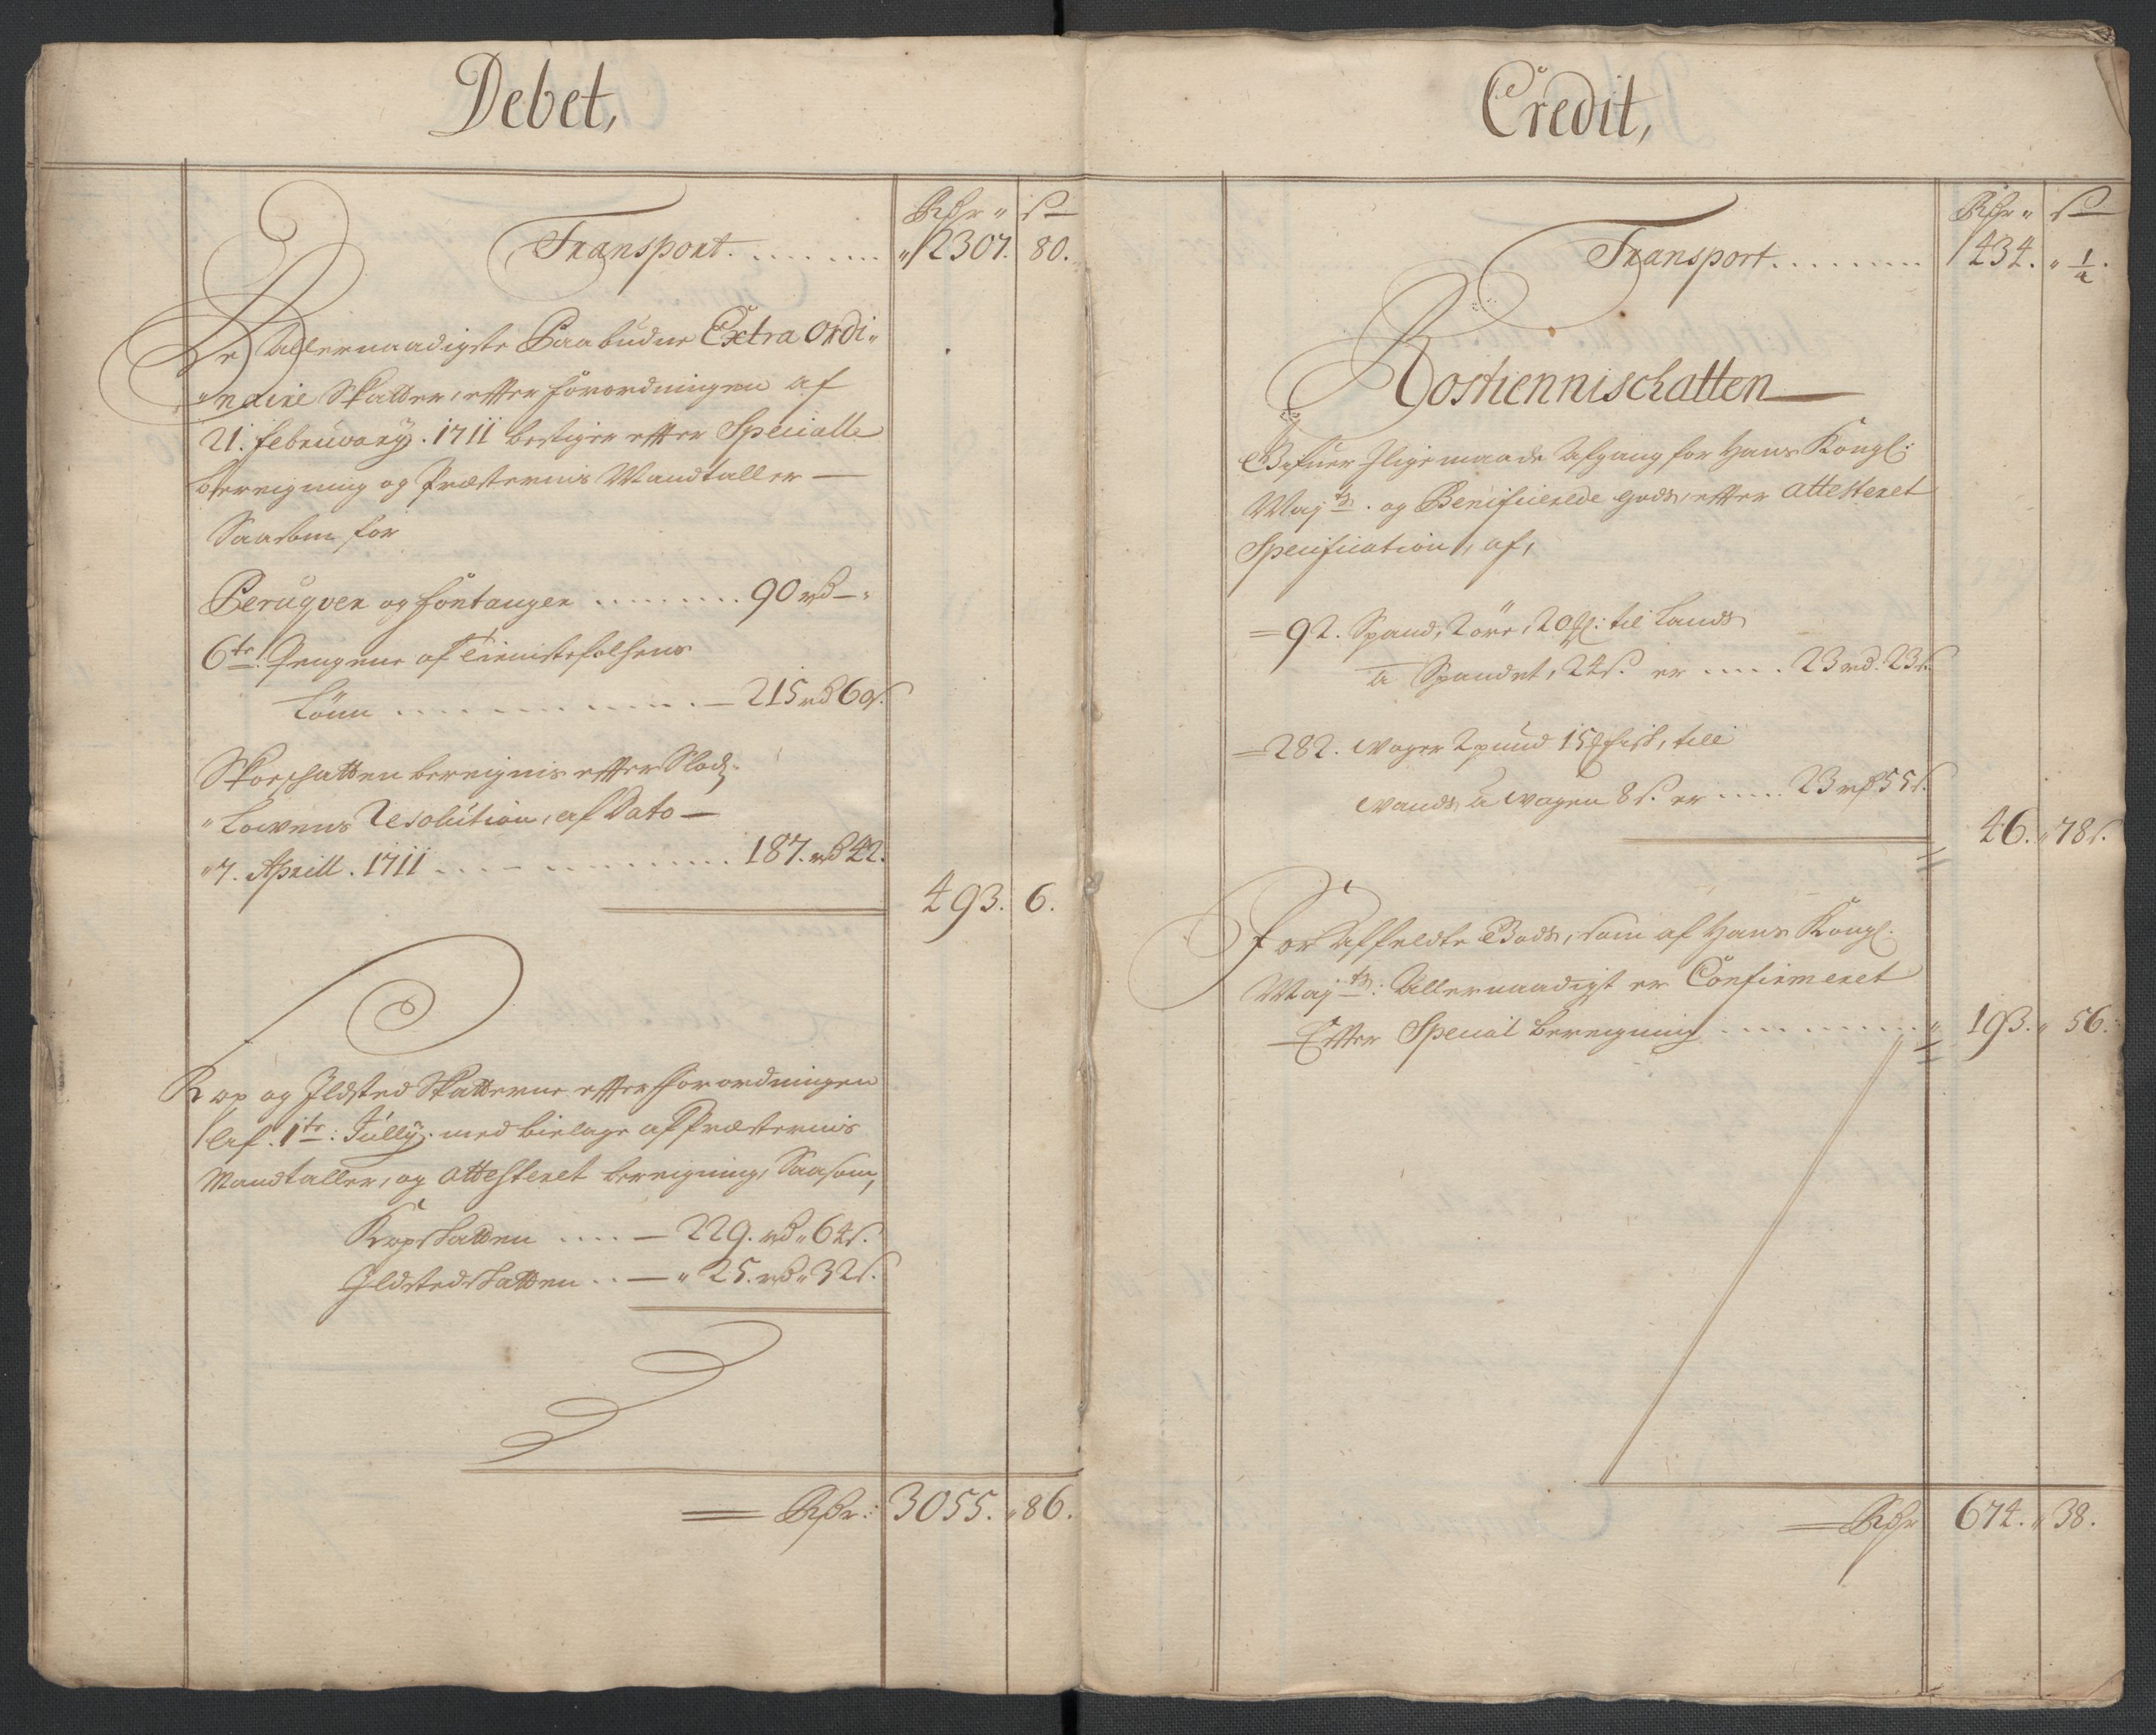 Debet,
Rdr " ß
Transport. ........ "2307. 80.
De Allernaadigste Paabudne Extra Ordi"
"naire Skatter, efter Forordningen af
21. Februarij. 1711 bestiger efter Specialle
bereigning og Præsternis Mandtaller —
Saasom for
Peruqver og Fontanger ........ 90 rd —"
6te Pengene af Tienistefolkens
Lönn ........ — 215 rd 60 ß.
Skoeschatten bereignis efter Slodz
"Lowens Resolution, af Dato —
"7. Aprill. 1711 ........ 187. rd 42.
493. 6.
Kop og Ildsted Skatterne efter Forordningen
af. 1te: Jullij. med bielage af Præsternis
Mandtaller, og attesteret bereigning, Saasom,
Kopskatten .... — 229. rd " 64 ß.
Ildstedskatten .. — " 25. rd " 32 ß.
Rdr: 3055. " 86.
Credit,
Rdr " ß
Transport ........ 434. " 1/2.
Rostiennischatten
Befuer Iligemaade Afgang for Hans Kongl:
Maj ts. og Benificerede gods, efter attesteret
Specification, af,
= 92. Spand, 2 öre, 20 : til Lands
a Spandet, 24 ß. er .... 23 rd. 23 ß.
= 282. Woger 2 pund 15 fisk, till
Wands a Wogen 8 ß. er .... 23 rd 55 ß.
46. " 78 ß.
For Affeldte Gods, som af Hans Kongl.
Maj ts: Allernaadigst er Confirmeret
Efter Special bereigning ........ 193. " 56.
Rdr 674. " 38.